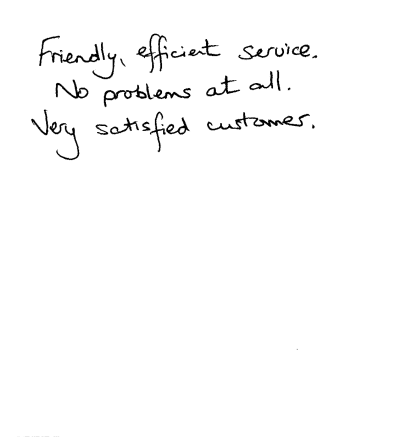 Friendly, efficient service.
No problems at all.
Very satisfied customer.